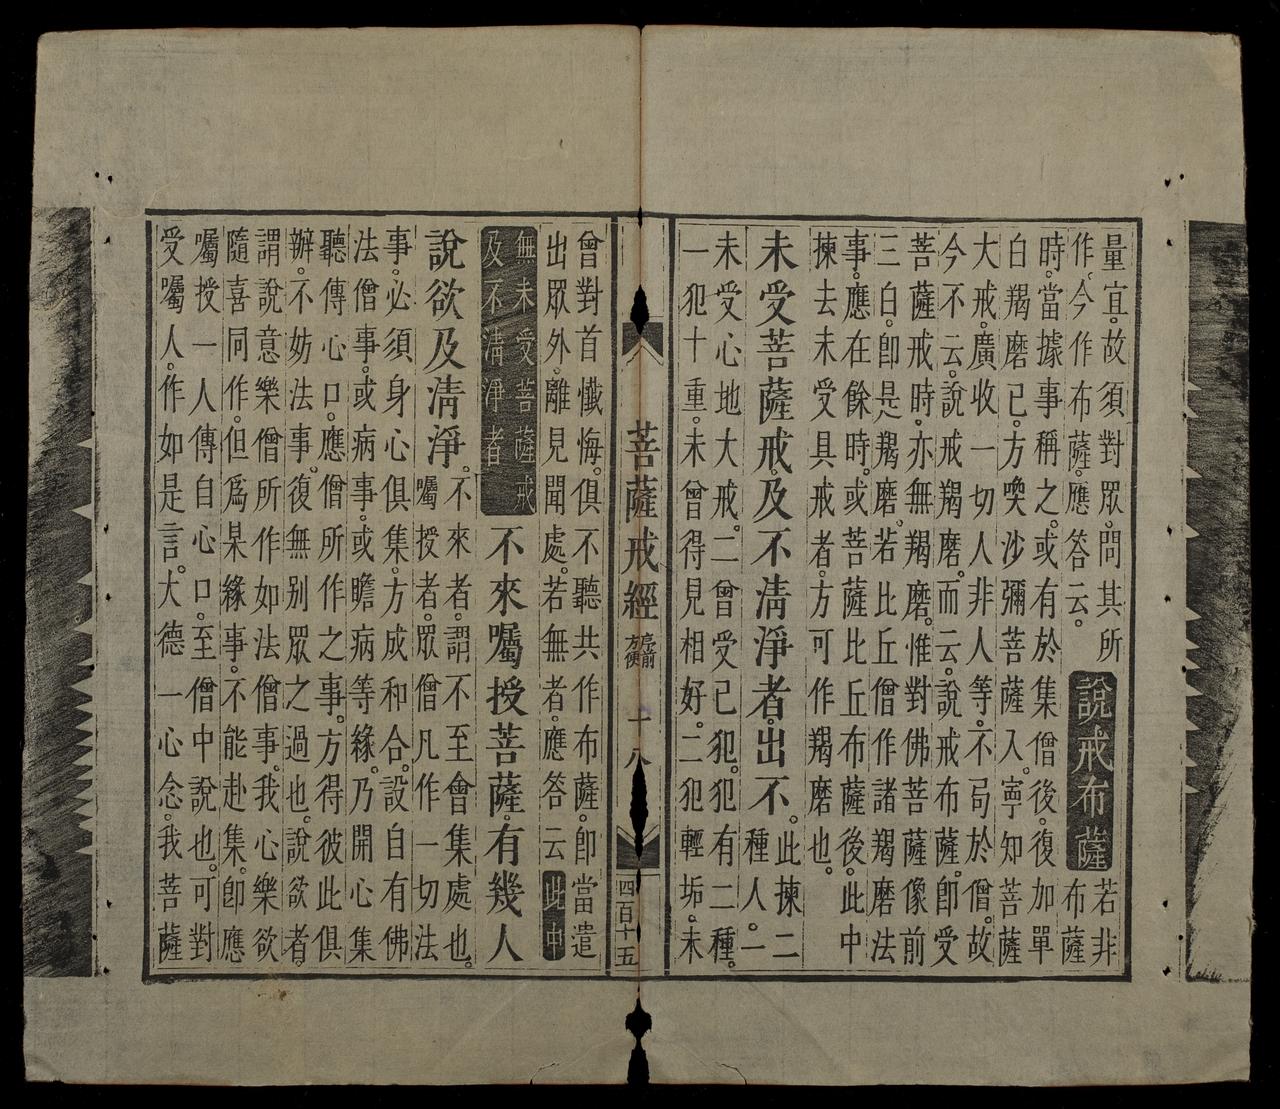 量宜。故須對眾。問其所
作。今作布薩。應答云。
說戒布薩
若非
布薩
時。當據事稱之。或有於集僧後。復加單
白羯磨已。方喚沙彌菩薩入。寧知菩薩
大戒。廣收一切人非人等。不局於僧。故
今不云。說戒羯磨。而云。說戒布薩。即受
菩薩戒時。亦無羯磨。惟對佛菩薩像前
三白。即是羯磨。若比丘僧作諸羯磨法
事。應在餘時。或菩薩比丘布薩後。此中
揀去未受具戒者。方可作羯磨也。
未受菩薩戒。及不清淨者。出不。
此揀二
種人。一
未受心地大戒。二曾受已犯。犯有二種。
一犯十重。未曾得見相好。二犯輕垢。未
菩薩戒經
亮前
方便
十八
四百十五
曾對首懺悔。俱不聽共作布薩。即當遣
出眾外。離見聞處。若無者。應答云
此中
無未受菩薩戒
及不清淨者
不來囑授菩薩。有幾人
說欲及清淨。
不來者。謂不至會集處也。
囑授者。眾僧凡作一切法
事。必須身心俱集。方成和合。設自有佛
法僧事。或病事。或瞻病等緣。乃開心集
聽傳心口。應僧所作之事。方得彼此俱
辦。不妨法事。復無別眾之過也。說欲者。
謂說意樂僧所作如法僧事。我心樂欲
隨喜同作。但為某緣事。不能赴集。即應
囑授一人傳自心口。至僧中說也。可對
受囑人。作如是言。大德一心念。我菩薩